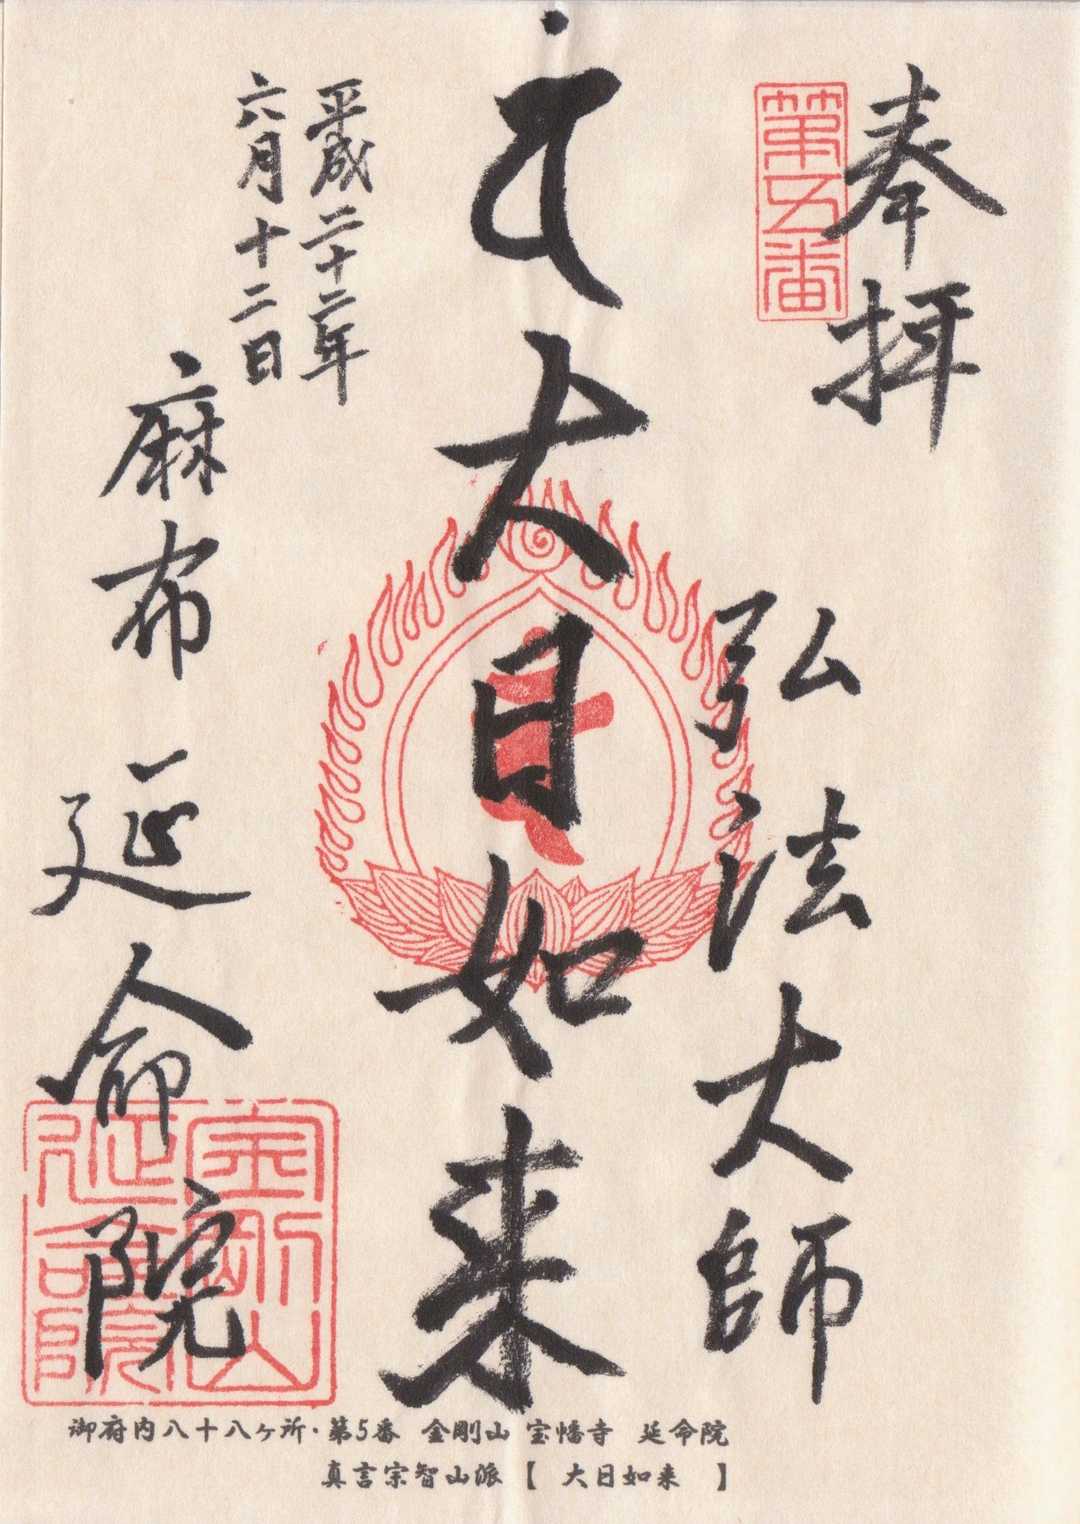 奉拝
第五番
弘法大師
大日如来
平成二十二年
六月十二日
麻布延命院
金剛山
延命院
御府内八十八ヶ所・第5番 金剛山 宝幡寺 延命院
真言宗智山派【 大日如来 】